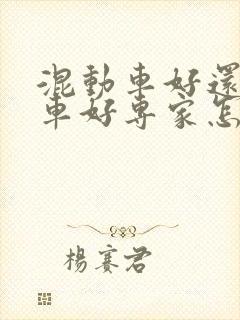 混動車好還
車好專家怎
楊賽君